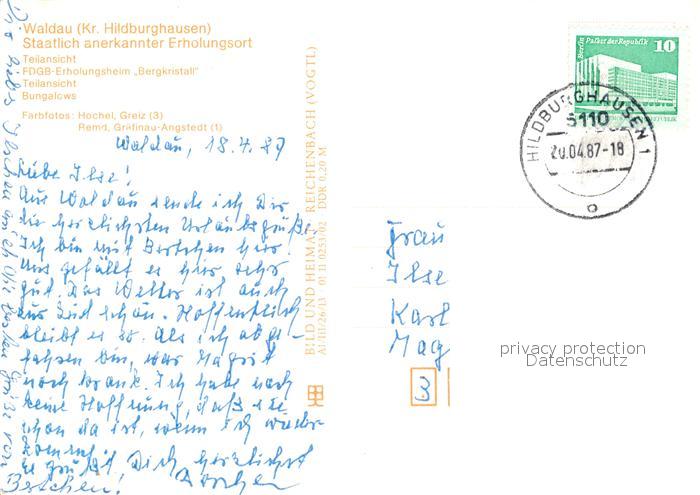 Waldau (Kr. Hildburghausen)
Staatlich anerkannter Erholungsort
Teilansicht
FDGB-Erholungsheim „Bergkristall"
Teilansicht
Bungalows
Farbfotos: Hochel, Greiz (3)
Remd, Gräfinau-Angstedt (1)
Waldau, 18.4.87
Liebe Ilse!
Aus Waldau sende ich Dir
die herzlichsten Urlaubsgrüße.
Ich bin mit Bertchen hier
Uns gefällt es hier sehr
gut. Das Wetter ist auch
zur Zeit schön. Hoffentlich
bleibt es so. Als ich abge-
fahren bin, war Magrit
noch krank. Ich habe noch
keine Hoffnung, daß sie
schon da ist, wenn ich wieder-
komme.
Es grüßt Dich herzlichst
Dorchen
Dir liebes Ilschen auch die besten Grüße von
Bertchen!
BILD UND HEIMAT REICHENBACH (VOGTL)
A1/III/26/13 01 11 0253/02 DDR 0,20 M
Berlin Palast der Republik
10
HILDBURGHAUSEN 1
6110
20.04.87-18
a
Frau
Ilse
Karl
Mag
3
privacy protection
Datenschutz